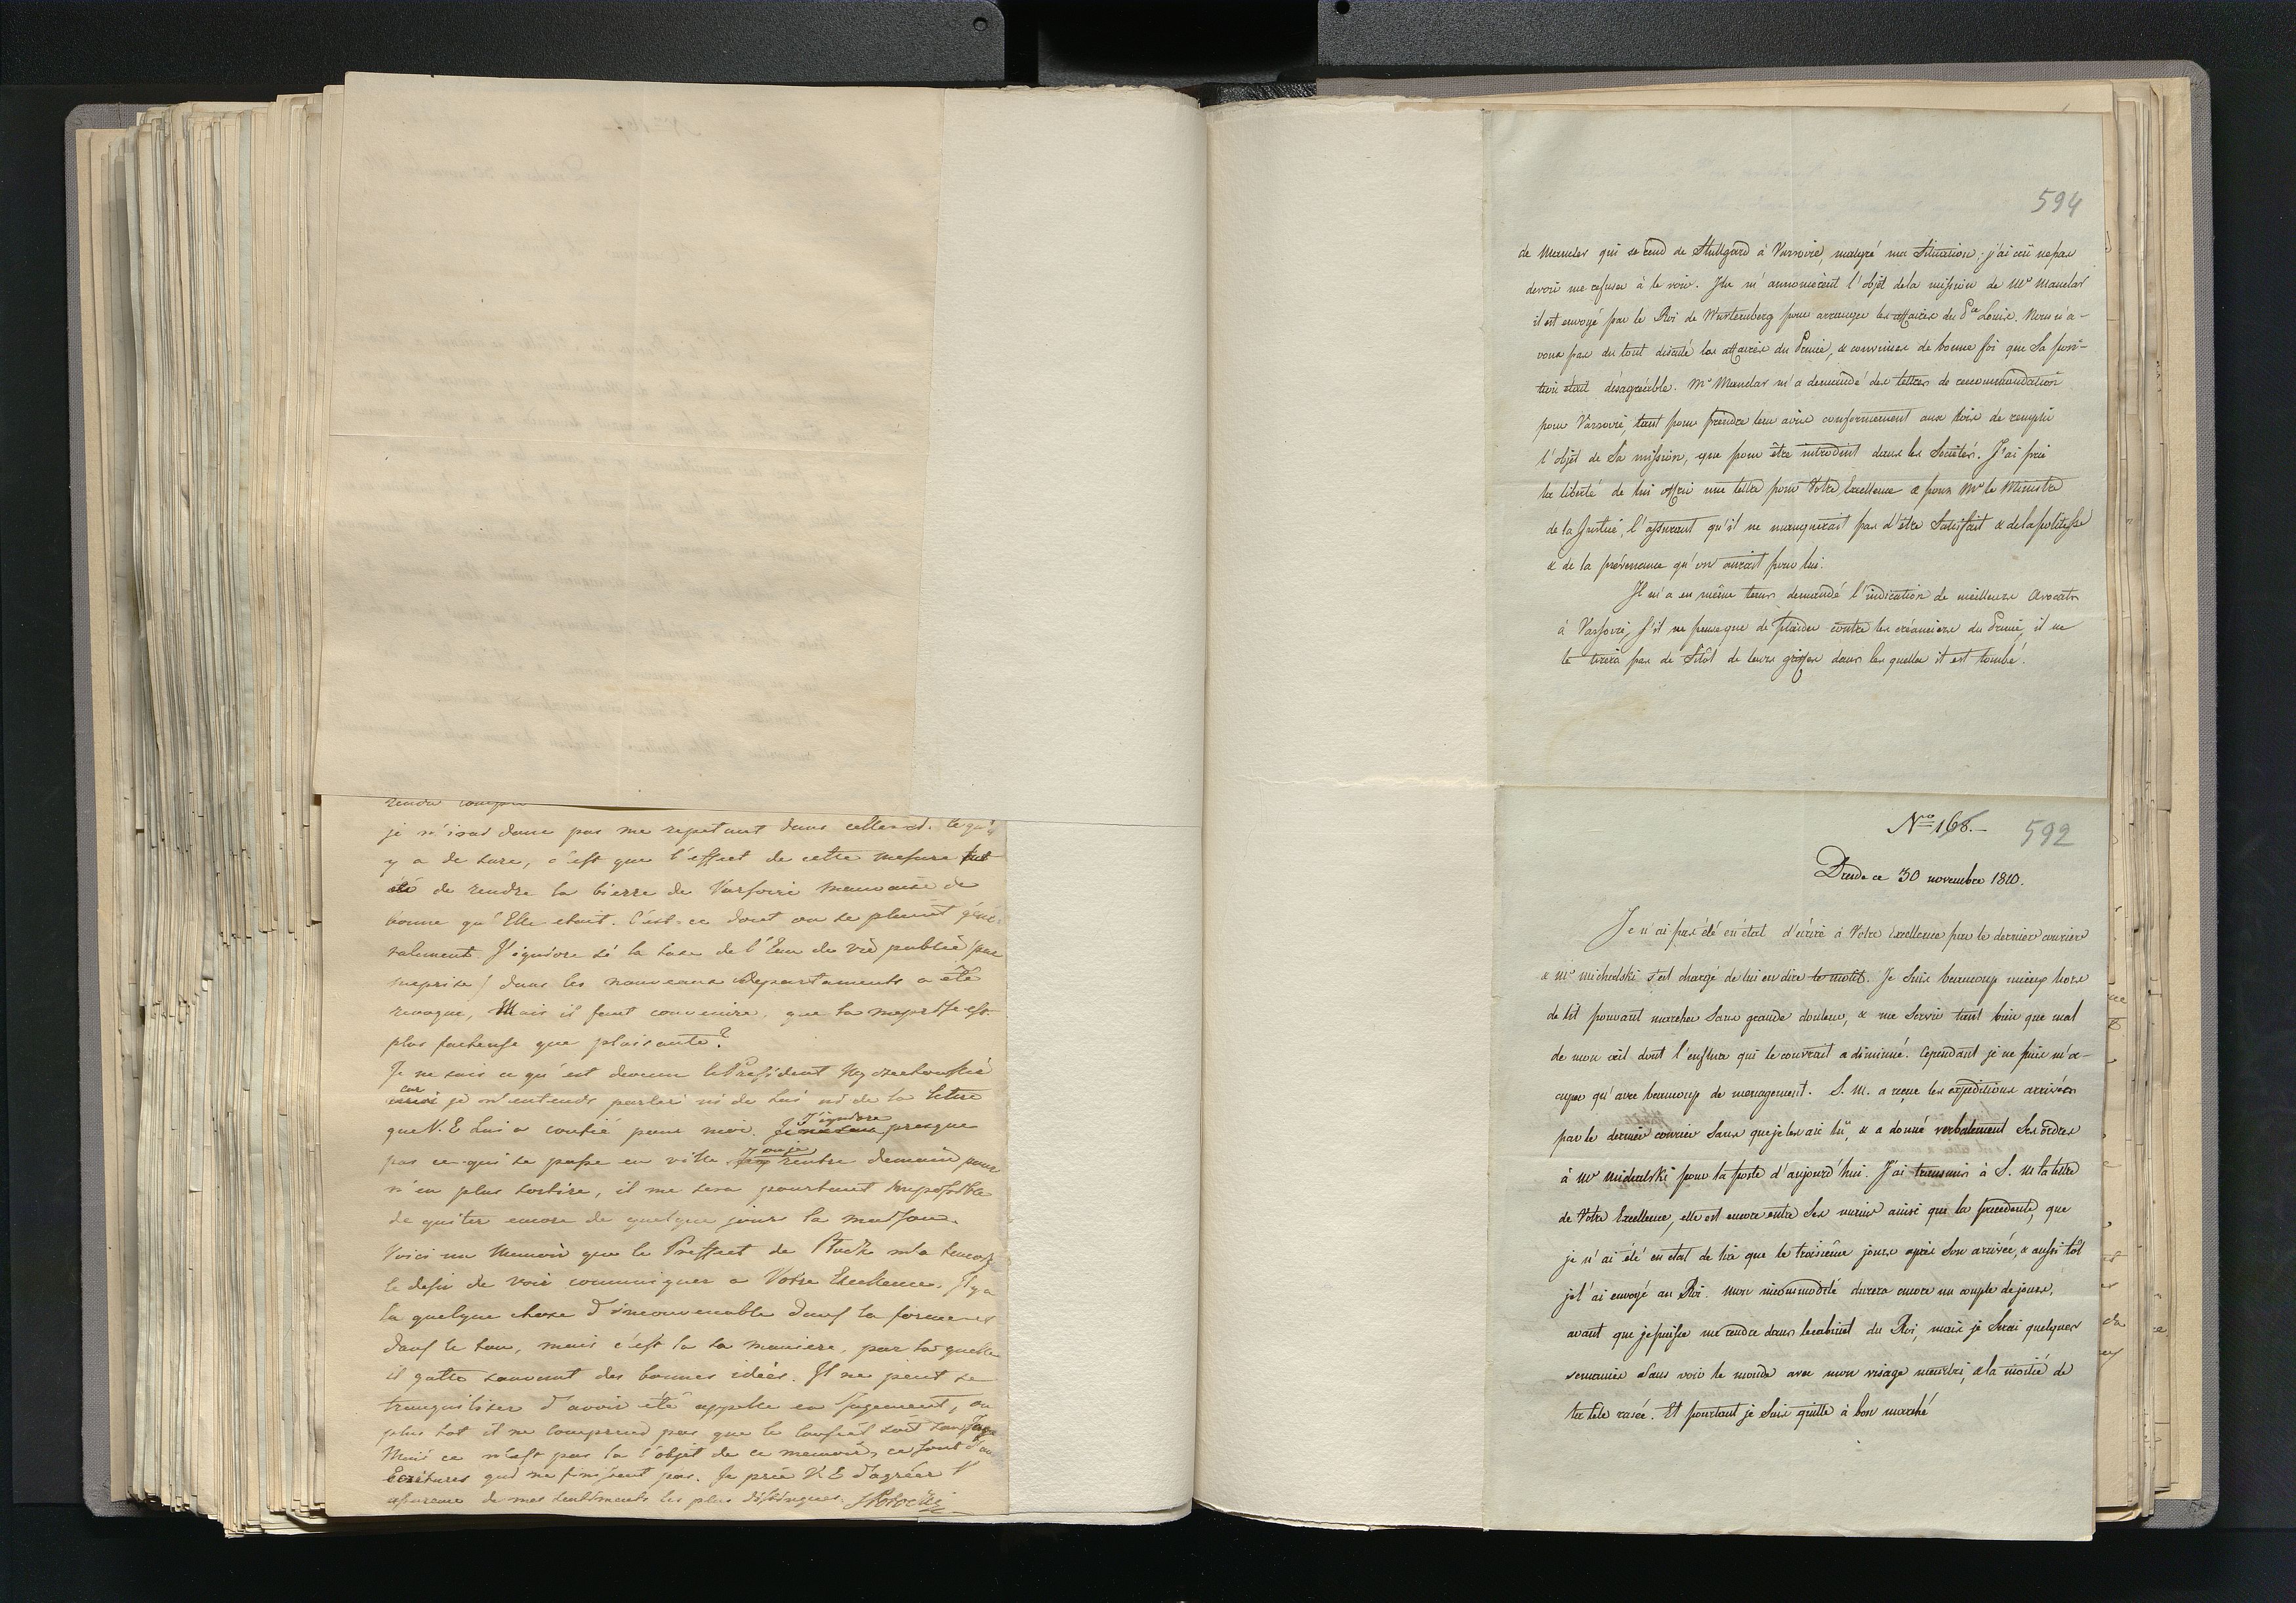 rendu compte
je n'irai donc pas me repetant dans celle-ci. Ce qu'il
y a de sure, c'est que l'effect de cette mesure
été de rendre la bierre de Varsovie mauvaise de
bonne qu'Elle etoit. C'est-ce dont on se plaint géné-
ralement. J'ignore si la taxe de l'Eau de vie publié (par
meprise) dans les nouveaux Departaments a été
revoque, Mais il faut convenire, que la meprise est
plus facheuse que plaisante?
Je ne sais ce qu'est devenu le President
car je n'entends parler ni de Lui ni de la lettre
que V. E Lui a confié pour moi. J'ignore presque
pas ce qui se passe en ville rentre demain pour
n'en plus sortire, il me sera pourtant impossible
de quiter encore de quelque jours la maison.
Voici un Memoir que le Preffect de m'a temoig
le desir de voir communiquer a Votre Excellence. Il y a
la quelque chose d'inconvenable dans la forme et
dans le ton, mais c'est la sa maniere, par la quelle
il gatte souvent des bonnes idées. Il ne peut se
tranquiliser d'avoir été appellé en Jugement, ou
plus tot il ne comprend pas que le Conseil soit son Juge
Mais ce n'est pas la l'objet de ce memoir, ce sont d'au
Ecritures qui ne finissent pas. Je prie V. E d'agréer l'
assurance de mes sentiments les plus distingues. Potocki
594
de Maucler qui se rend de Stuttgard à Varsovie, malgré ma situation; j'ai crû ne pas
devoir me refuser à le voir. Ils m'annoncèrent l'objêt de la mission de Mr Mauclar
il est envoyé par le Roi de Wurtemberg pour arranger les affaires du Pce Louis. Nous n'a-
vons pas du tout discuté les affaires du Prince, & convenues de bonne foi que Sa posi-
tion était désagréable. Mr Mauclar m'a demandé des lettres de recommandation
pour Varsovie, tant pour prendre leur avis conformement aux loix de remplir
l'objêt de Sa mission, que pour être introduit dans les Societés. J'ai pris
la liberté de lui offrir une lettre pour Votre Excellence & pour Mr le Ministre
de la Justice, l'assurant qu'il ne manquerait pas d'être Satisfait & de la politesse
& de la prévenance qu'on aurait pour lui.
Il m'a en même tems demandé l'indication de meilleurs Avocats
à Varsovie, S'il ne pense que de plaider contre les créanciers du Prince, il ne
le tirera pas de Sitôt de leurs griffes dans les quelles il est tombé.
No 168.
592
Dresde ce 30 novembre 1810.
Je n'ai pas été en état d'écrire à Votre Excellence par le dernier courier
& Mr Michalski s'est chargé de lui en dire le motif. Je Suis beaucoup mieux hors
de lit pouvant marcher Sans grande douleur, & me Servir tant bien que mal
de mon œil dont l'enflure qui le couvrait a diminué. Cependant je ne puis m'o-
cuper qu'avec beaucoup de menagement. S. M. a reçue les expeditions arrivées
par le dernier courier Sans que je les aie lû, & a donné verbalement Ses ordres
à Mr Michalski pour la poste d'aujourd'hui. J'ai transmis à S. M la lettre
de Votre Excellence, elle est encore entre Ses mains ainsi que la precedente, que
je n'ai été en etat de lire que le troisième jours après Son arrivée, & aussi tôt
je l'ai envoyé au Roi. Mon incommodité durera encore un couple de jours,
avant que je puisse me rendre dans le cabinet du Roi, mais je Serai quelques
semaines Sans voir le monde avec mon visage meurtri, & la moitié de
la tête rasée. Et pourtant je Suis quitte à bon marché